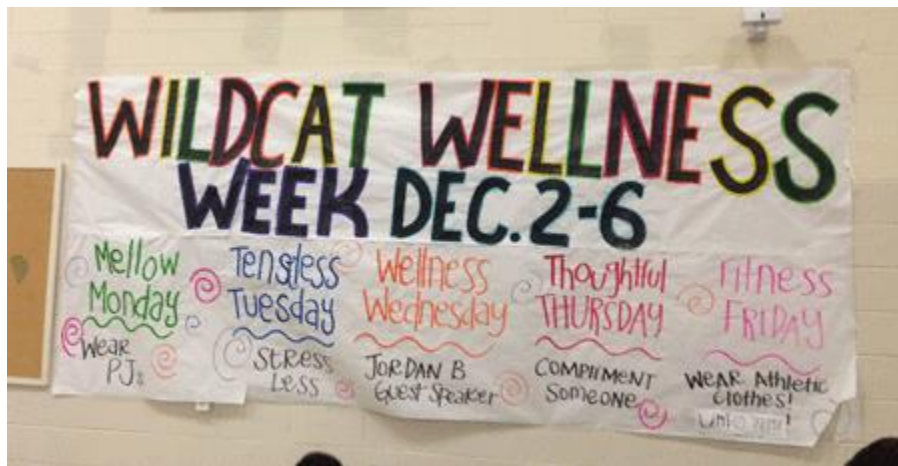 WILDCAT WELLNESS
WEEK DEC. 2-6
Mellow
Monday
Wear
PJs
Tuesday
STRESS
Less
Wellness
Wednesday
JORDAN B
Guest Speaker
Thoughtful
THURSDAY
COMPLIMENT
Someone
Fitness
FRIDAY
WEAR Athletic
Clothes!